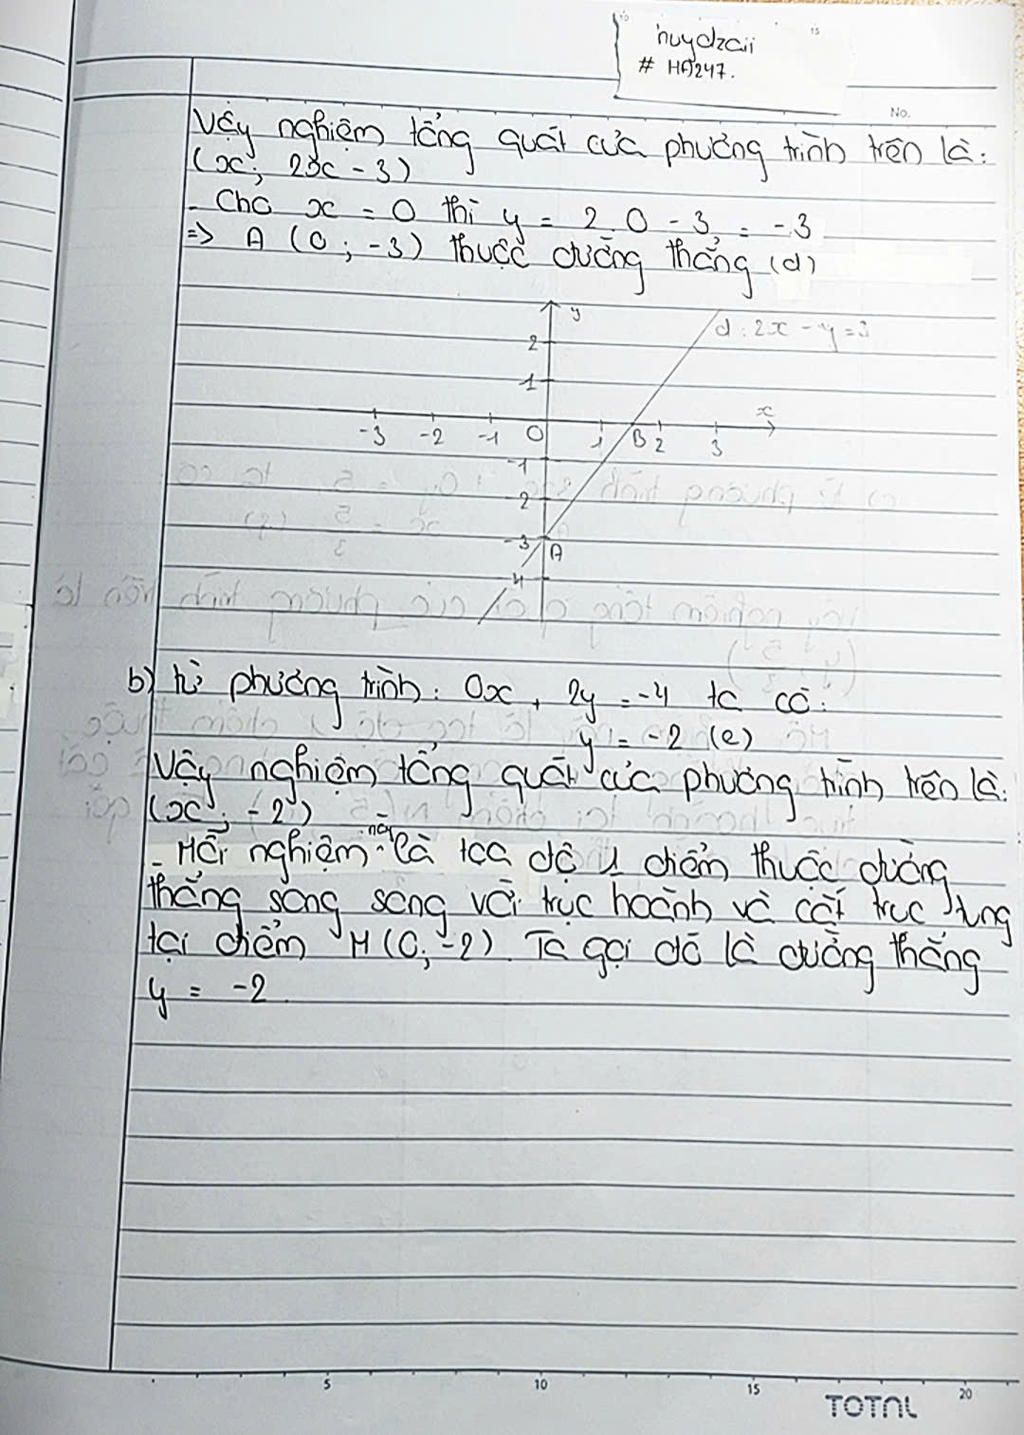 huydzaii
# HA247.
No.
Vậy nghiệm tổng quát của phương trình trên là:
(x; 2x - 3)
- Cho x = 0 thì y = 2.0 - 3 = -3
=> A (0; -3) thuộc đường thẳng (d)
y
d: 2x - y = 3
2
1
x
-3 -2 -1 O 1 B 2 3
-1
-2
-3 A
-4
b) từ phương trình: 0x + 2y = -4 ta có:
y = -2 (e)
Vậy nghiệm tổng quát của phương trình trên là:
(x; -2)
- Mỗi nghiệm này là tọa độ 1 điểm thuộc đường
thẳng song song với trục hoành và cắt trục tung
tại điểm M(0; -2). Ta gọi đó là đường thẳng
y = -2.
5 10 15 20
TOTAL